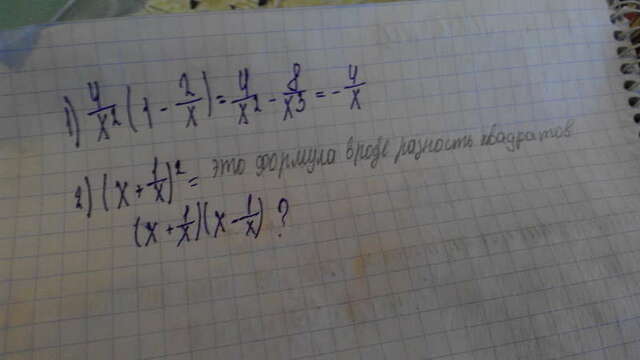 1) 4/x² (1 - 2/x) = 4/x² - 8/x³ = - 4/x
2) (x + 1/x)² = это формула вроде разность квадратов
(x + 1/x)(x - 1/x) ?